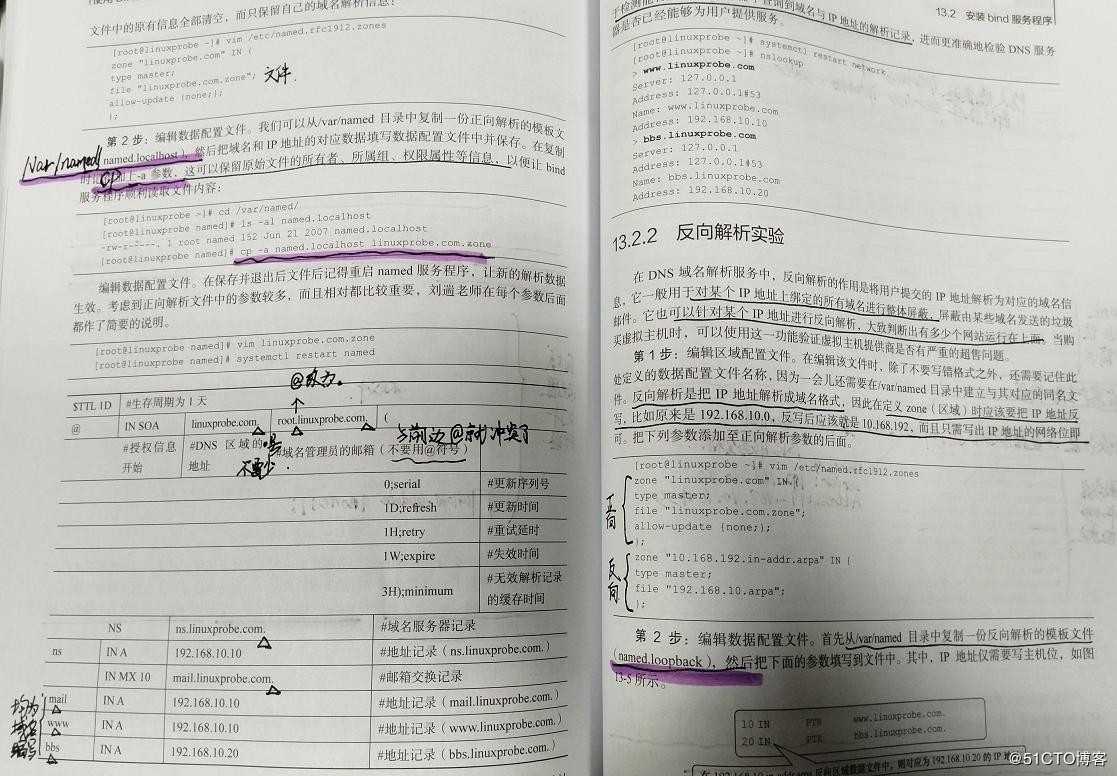 文件中的原有信息全部清空，而只保留自己的域名解析信息：
[root@linuxprobe ~]# vim /etc/named.rfc1912.zones
zone "linuxprobe.com" IN {
type master;
file "linuxprobe.com.zone"; 文件
allow-update {none;};
};
第 2 步：编辑数据配置文件。我们可以从/var/named 目录中复制一份正向解析的模板文
/var/named/
named.localhost），然后把域名和 IP 地址的对应数据填写数据配置文件中并保存。在复制
cp 上-a 参数，这可以保留原始文件的所有者、所属组、权限属性等信息，以便让 bind
服务程序顺利读取文件内容：
[root@linuxprobe ~]# cd /var/named/
[root@linuxprobe named]# ls -al named.localhost
-rw-r-----. 1 root named 152 Jun 21 2007 named.localhost
[root@linuxprobe named]# cp -a named.localhost linuxprobe.com.zone
编辑数据配置文件。在保存并退出后文件后记得重启 named 服务程序，让新的解析数据
生效。考虑到正向解析文件中的参数较多，而且相对都比较重要，刘遄老师在每个参数后面
都作了简要的说明。
[root@linuxprobe named]# vim linuxprobe.com.zone
[root@linuxprobe named]# systemctl restart named
$TTL 1D #生存周期为 1 天
@ IN SOA linuxprobe.com. root.linuxprobe.com. (
与前边@就冲突了
#授权信息开始 #DNS 区域的地址 #域名管理员的邮箱（不要用@符号）
不要少
0;serial #更新序列号
1D;refresh #更新时间
1H;retry #重试延时
1W;expire #失效时间
3H);minimum #无效解析记录的缓存时间
NS ns.linuxprobe.com. #域名服务器记录
ns IN A 192.168.10.10 #地址记录（ns.linuxprobe.com.）
IN MX 10 mail.linuxprobe.com. #邮箱交换记录
mail IN A 192.168.10.10 #地址记录（mail.linuxprobe.com.）
www IN A 192.168.10.10 #地址记录（www.linuxprobe.com.）
bbs IN A 192.168.10.20 #地址记录（bbs.linuxprobe.com.）
13.2 安装 bind 服务程序
询到域名与 IP 地址的解析记录，进而更准确地检验 DNS 服务
器是否已经能够为用户提供服务。
[root@linuxprobe ~]# systemctl restart network
[root@linuxprobe ~]# nslookup
> www.linuxprobe.com
Server: 127.0.0.1
Address: 127.0.0.1#53
Name: www.linuxprobe.com
Address: 192.168.10.10
> bbs.linuxprobe.com
Server: 127.0.0.1
Address: 127.0.0.1#53
Name: bbs.linuxprobe.com
Address: 192.168.10.20
13.2.2 反向解析实验
在 DNS 域名解析服务中，反向解析的作用是将用户提交的 IP 地址解析为对应的域名信
息，它一般用于对某个 IP 地址上绑定的所有域名进行整体屏蔽，屏蔽由某些域名发送的垃圾
邮件。它也可以针对某个 IP 地址进行反向解析，大致判断出有多少个网站运行在上面。当购
买虚拟主机时，可以使用这一功能验证虚拟主机提供商是否有严重的超售问题。
第 1 步：编辑区域配置文件。在编辑该文件时，除了不要写错格式之外，还需要记住此
处定义的数据配置文件名称，因为一会儿还需要在/var/named 目录中建立与其对应的同名文
件。反向解析是把 IP 地址解析成域名格式，因此在定义 zone（区域）时应该要把 IP 地址反
写，比如原来是 192.168.10.0，反写后应该就是 10.168.192，而且只需写出 IP 地址的网络位即
可。把下列参数添加至正向解析参数的后面。
[root@linuxprobe ~]# vim /etc/named.rfc1912.zones
正向
zone "linuxprobe.com" IN {
type master;
file "linuxprobe.com.zone";
allow-update {none;};
};
反向
zone "10.168.192.in-addr.arpa" IN {
type master;
file "192.168.10.arpa";
};
第 2 步：编辑数据配置文件。首先从/var/named 目录中复制一份反向解析的模板文件
（named.loopback），然后把下面的参数填写到文件中。其中，IP 地址仅需要写主机位，如图
13-5 所示。
10 IN PTR www.linuxprobe.com.
20 IN PTR bbs.linuxprobe.com.
反向区域数据文件中，则对应为 192.168.10.20 的 IP 地
@51CTO博客